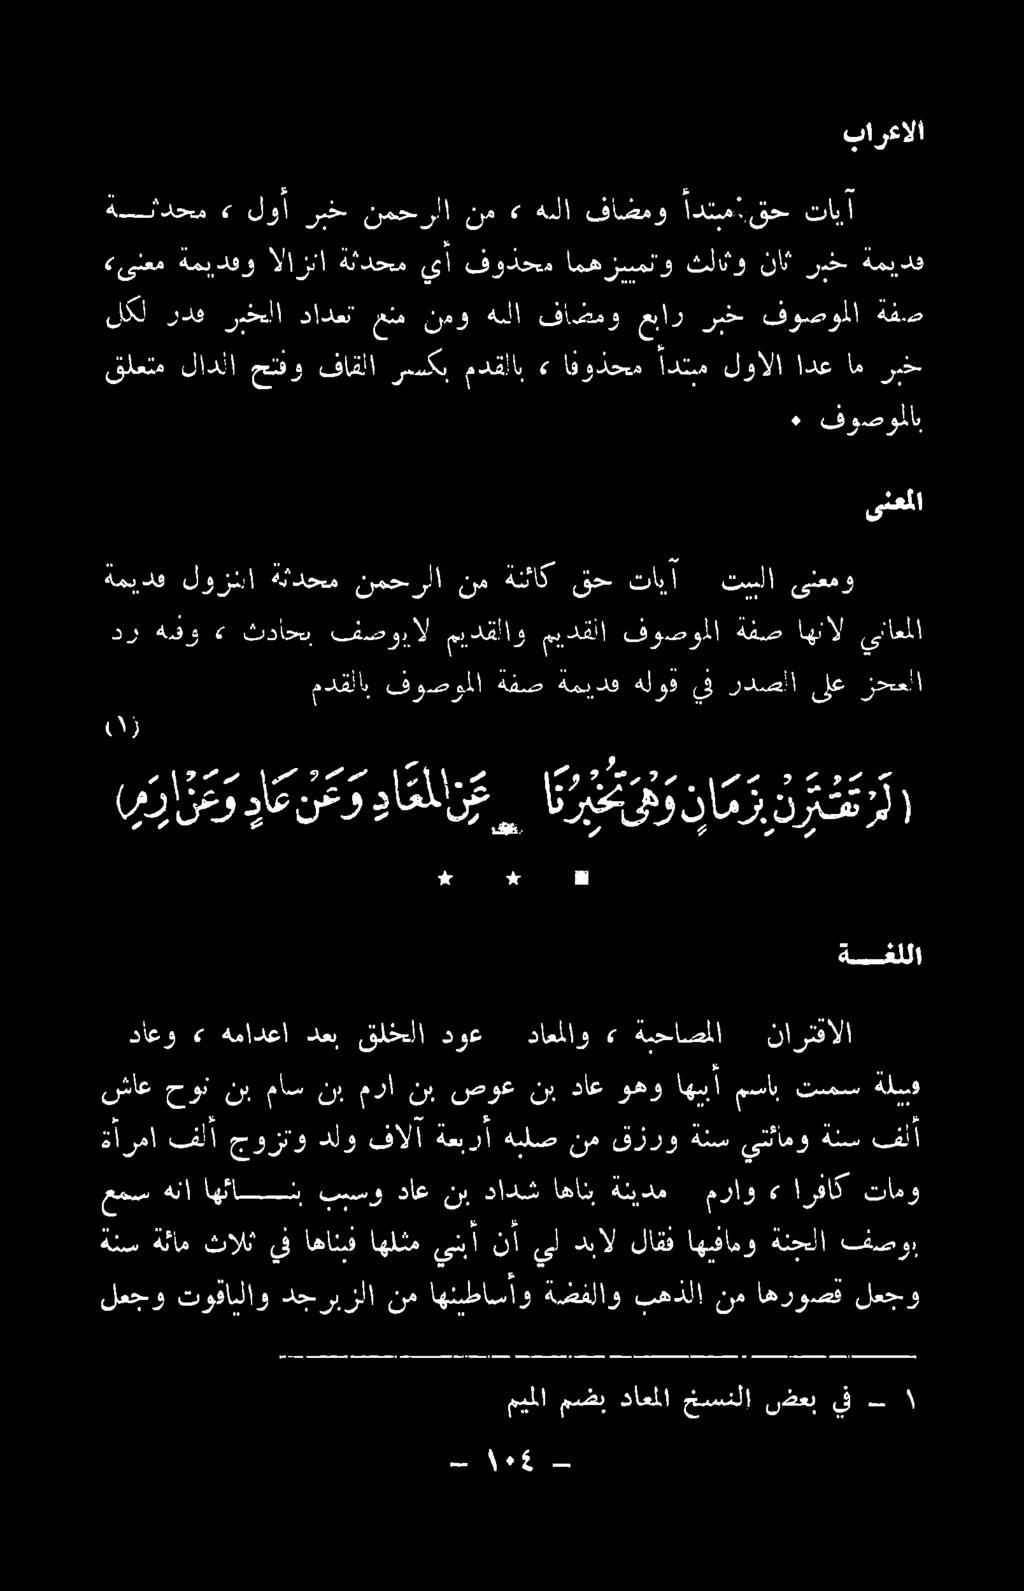 الاعراب
آيات حق: مبتدأ ومضاف اليه ، من الرحمن خبر أول ، محدثـــة
قديمة خبر ثان وثالث وتمييزهما محذوف أي محدثة انزالا وقديمة معنى،
صفة الموصوف خبر رابع ومضاف اليه ومن منع تعداد الخبر قدر لكل
خبر ما عدا الاول مبتدأ محذوفا ، بالقدم بكسر القاف وفتح الدال متعلق
بالموصوف ٠
المعنى
ومعنى البيت آيات حق كائنة من الرحمن محدثة النزول قديمة
المعاني لانها صفة الموصوف القديم والقديم لايوصف بحادث ، وفيه رد
العجز على الصدر في قوله قديمة صفة الموصوف بالقدم
(لَمْ تَقْتَرِنْ بِزَمَانٍ وَهْيَ تُخْبِرُنَا عَنِ المَعَادِ وَعَنْ عَادٍ وَعَنْ اِرَمِ) (١)
★ ★ ■
اللغـــة
الاقتران المصاحبة ، والمعاد عود الخلق بعد اعدامه ، وعاد
قبيلة سميت باسم أبيها وهو عاد بن عوص بن ارم بن سام بن نوح عاش
ألف سنة ومائتي سنة ورزق من صلبه أربعة آلاف ولد وتزوج ألف امرأة
ومات كافرا ، وارم مدينة بناها شداد بن عاد وسبب بنـــائها انه سمع
بوصف الجنة ومافيها فقال لابد لي أن أبني مثلها فبناها في ثلاث مائة سنة
وجعل قصورها من الذهب والفضة وأساطينها من الزبرجد والياقوت وجعل
١ - في بعض النسخ المعاد بضم الميم
- ١٠٤ -